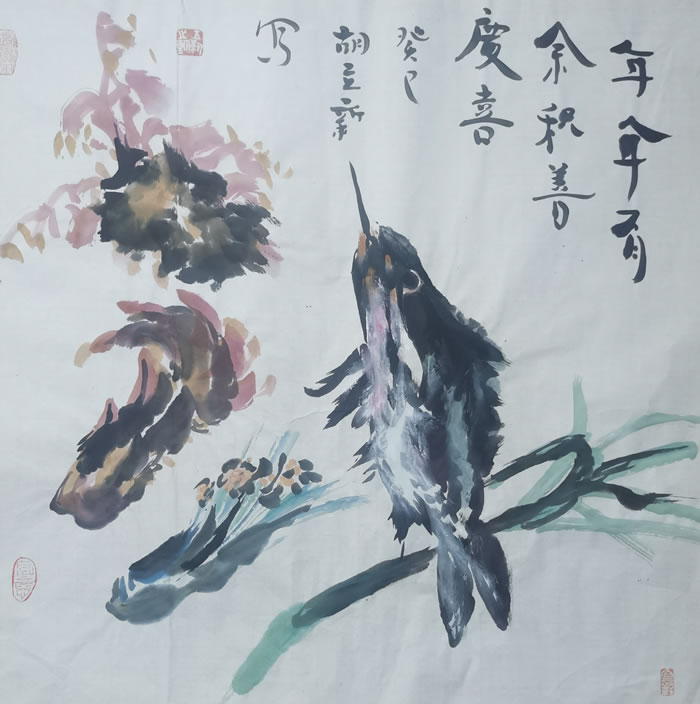 年年有
余积善
慶喜
癸巳
胡立新
写